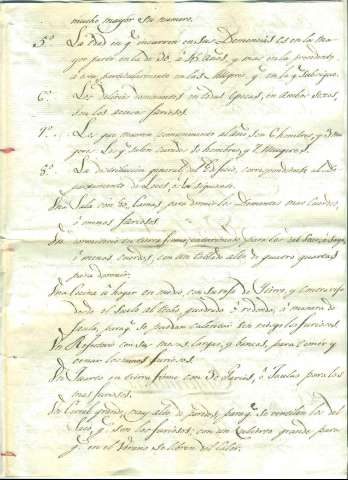 mucho mayor su numero.
5.º La edad en q.e incurren en sus Demencias es en la ma-
yor parte en la de 30, á 45 años, y mas en la
particularmente en las Mugeres, q.e en la q.e
6.º Los delirios dominantes en todas Epocas, en Ambos Sexos,
son los
7.º Los que mueren comunmente al año son 6 hombres, y 3 mu-
geres. Los q.e salen curados de hombres, y 2 Mugeres.
8.º La distribucion general del Edificio, correspondiente al De-
partamento de Locos, es la siguiente.
Una Sala con 20 camas, para dormir los Dementes mas Cuerdos,
ó menos furiosos
Un en tierra firme, para los del
ó menos cuerdos, con un tablado alto de quatro quartas
para dormir.
Una Cocina ú hogar en medio, con su rexa de Hierro, y
dado el suelo al redondo, á manera de
Jaula, para q.e se puedan calentar sin riesgo los furiosos
Un Refectorio con sus mesas largas, y bancos, para comer y
cenar los menos furiosos.
Un Quarto en tierra firme con Jaulas para los
mas furiosos.
Un Corral grande, muy alto de paredes, para q.e se ventilen los del
q.e son los furiosos; con un Cubierto grande para
q.e en el Verano se libren del Calor.